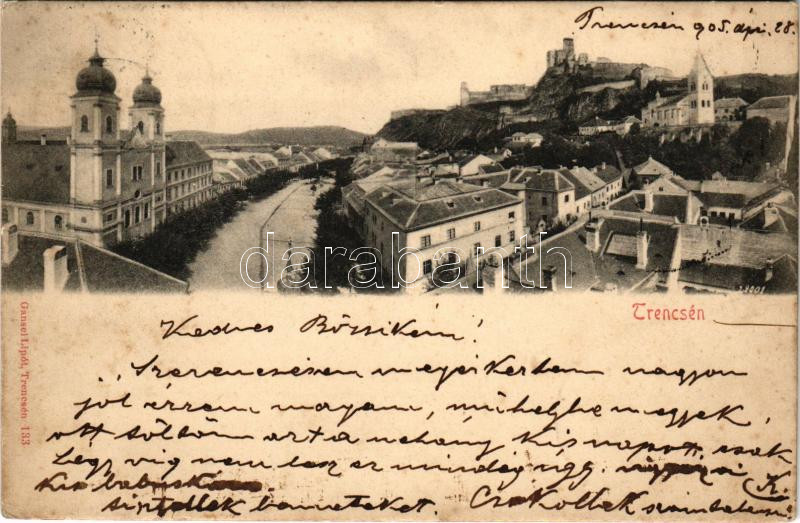 Trencsén 905. ápr. 28.
darabanth
S 8001
Trencsén
Gansel Lipót, Trencsén 133
Kedves Bözsikém!
Szerencsésen megérkeztem nagyon
jól érzem magam, mühelybe megyek,
ott töltöm azt a néhány kis napot csak
légy vig nem lesz ez mindég úgy.
kis babus
benneteket. Csókollak